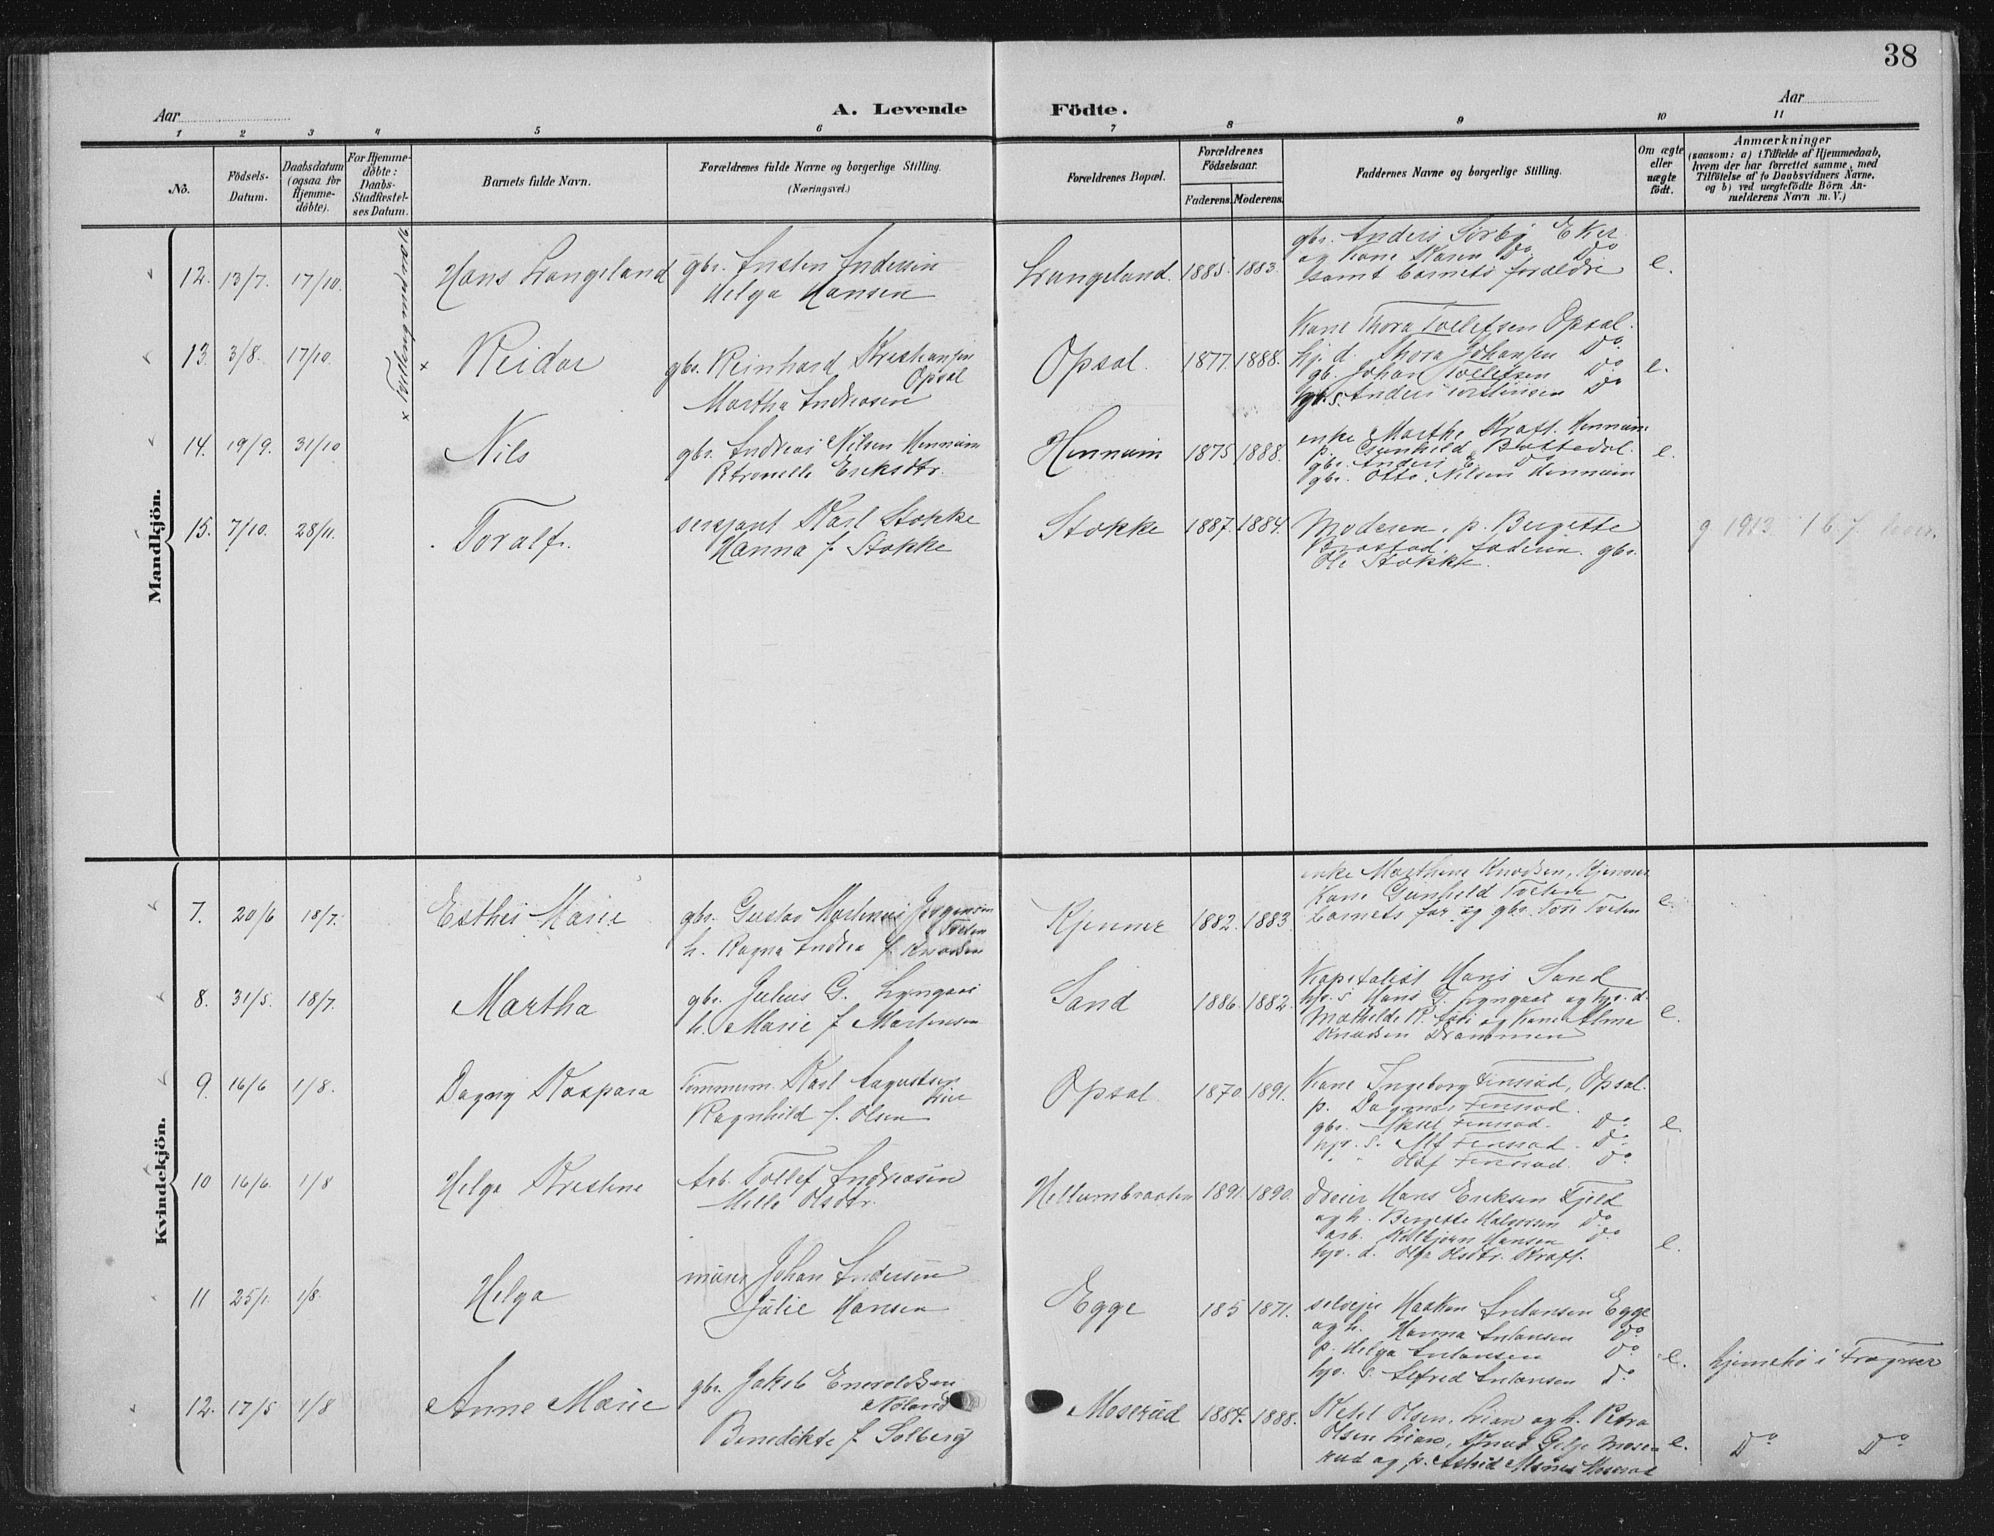 38
Aar
A. Levende Födte.
Aar
1 2 3 4 5 6 7 8 9 10 11
No.
Födsels-Datum.
Daabsdatum (ogsaa för Hjemme-döbte).
For Hjemme-döbte: Daabs-Stadfæstel-ses Datum.
Barnets fulde Navn.
Forældrenes fulde Navne og borgerlige Stilling. (Næringsvei.)
Forældrenes Bopæl.
Forældrenes Födselsaar.
Faderens. Moderens.
Faddernes Navne og borgerlige Stilling.
Om ægte eller uægte födt.
Anmærkninger
(saasom: a) i Tilfælde af Hjemmedaab, hvem der har forrettet samme, med Tilföielse af to Daabsvidners Navne, og b) ved uægtefödte Börn Anmelderens Navn m. V.)
Mandkjön.
12. 13/7. 17/10. Hans Langeland
gbr. Anders Sørby Eker
og Kone Karen Do Do
samt barnets forældre
Helga Hansen
Langeland. 1885. 1883. e.
13. 3/8. 17/10. × Reidar
gbr. Reinhard Kristiansen Opsal
Martha Andreasen
Opsal. 1877. 1888.
Kone Thora Tollefsen Opsal.
hj. d. Thora Johansen Do
gb. Johan Tollefsen Do
e.
14. 19/9. 31/10 Nils
gbr. Andreas Nilsen Hennum
Petronelle Eriksdtr.
Hennum 1875 1888.
gbr. Otto Nilsen Hennum
e.
15. 7/10. 28/11. Toralf.
sersjant Karl Stokke
Hanna f. Stokke
Stokke 1887. 1884.
Moderen, p. Bergitte
faderen. gbr.
Ole Stokke.
Kvindekjön.
7. 20/6 18/7. Esther Marie
gbr. Gustav Martinius Jørgensen Tveten
h. Ragna Andrea f. Knudsen
Kjenner 1882. 1883.
enke Marthine Knudsen, Kjenner
Kone Gunhild Tveten
barnets far og gbr. Tveten
e.
8. 31/5. 18/7. Martha
gbr. Julius G. Lyngaas
h. Marie f. Martinsen
Sand 1886. 1882.
Kapitalist Hans Sand
hjv. s. Hans G. Lyngaas og hjv. d.
Mathilde og Kone Alma
Knudsen Drammen
e.
9. 16/6 1/8. Dagny Kaspara
Tømmerm. Karl Augustsen Lier
Ragnhild f. Olsen
Opsal 1870. 1891.
Kone Ingeborg Finsrud, Opsal.
p. Dagmar Finsrud.
gbr. Finsrud. Do
hjv. s. Alf Finsrud. Do
" " Olaf Finsrud. Do
e.
10 16/6. 1/8 Helga Kristine
Arb. Tollef Andreasen
Milla Olsdtr.
Hellumbraaten 1891. 1890.
Hans Eriksen Fjeld
og h. Bergitte Halvorsen Do
arb. Kolbjørn Hansen Do
hjv. d. Olga Olsdtr. Kraft.
e.
11 25/1. 1/8. Helga
murer Johan Andersen
Julie Hansen
Egge 185 1871.
selveier Haaken Antonsen Egge
og h. Hanna Antonsen Do
p. Helga Antonsen Do
hjv. s. Alfred Antonsen Do
e. hjemehø i Frogner
12. 17/5 1/8 Anne Marie
gbr. Jakob Enevoldsen
Benedikte f. Solberg
Moserud 1884. 1888.
Ketil Olsen, Lian og h. Petra
Olsen Lian, Knut Gilje Mose-
rud og p. Astrid
e. Do Do